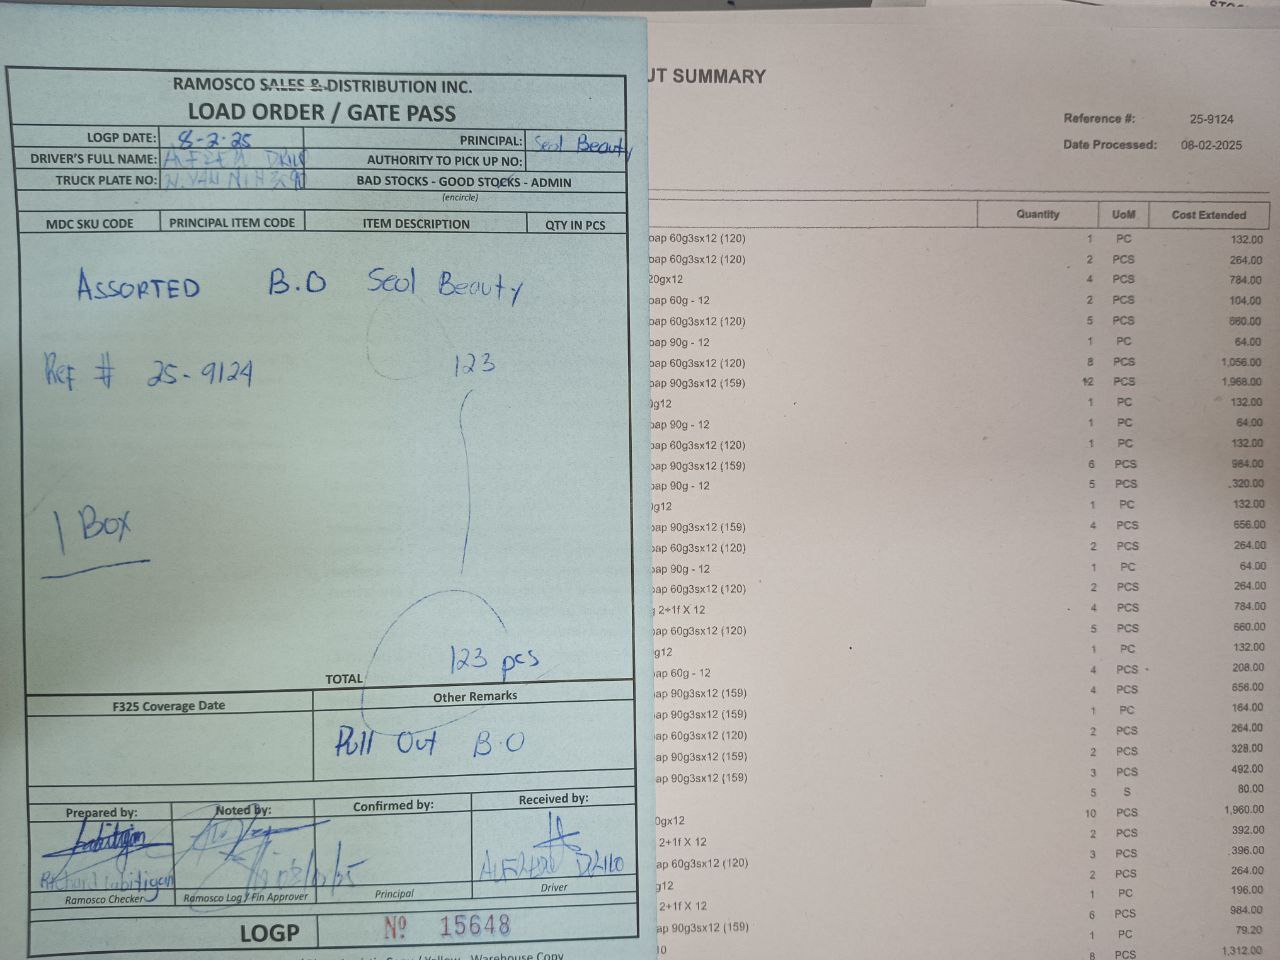 RAMOSCO SALES & DISTRIBUTION INC.
LOAD ORDER / GATE PASS
LOGP DATE: 8-2-25 PRINCIPAL: Seol Beauty
DRIVER'S FULL NAME: AUTHORITY TO PICK UP NO:
TRUCK PLATE NO: BAD STOCKS - GOOD STOCKS - ADMIN
(encircle)
MDC SKU CODE PRINCIPAL ITEM CODE ITEM DESCRIPTION QTY IN PCS
ASSORTED B.O Seol Beauty
Ref # 25-9124 123
1 Box
123 pcs
TOTAL
F325 Coverage Date Other Remarks
Pull Out B.O
Prepared by: Noted by: Confirmed by: Received by:
Richard Labitigan
Ramosco Checker Ramosco Log / Fin Approver Principal Driver
LOGP Nº 15648
Warehouse Copy
UT SUMMARY
Reference #: 25-9124
Date Processed: 08-02-2025
Quantity UoM Cost Extended
oap 60g3sx12 (120) 1 PC 132.00
oap 60g3sx12 (120) 2 PCS 264.00
20gx12 4 PCS 784.00
oap 60g - 12 2 PCS 104.00
oap 60g3sx12 (120) 5 PCS 660.00
oap 90g - 12 1 PC 64.00
oap 60g3sx12 (120) 8 PCS 1,056.00
oap 90g3sx12 (159) 12 PCS 1,968.00
0g12 1 PC 132.00
oap 90g - 12 1 PC 64.00
oap 60g3sx12 (120) 1 PC 132.00
oap 90g3sx12 (159) 6 PCS 984.00
oap 90g - 12 5 PCS 320.00
0g12 1 PC 132.00
oap 90g3sx12 (159) 4 PCS 656.00
oap 60g3sx12 (120) 2 PCS 264.00
oap 90g - 12 1 PC 64.00
oap 60g3sx12 (120) 2 PCS 264.00
g 2+1f X 12 4 PCS 784.00
oap 60g3sx12 (120) 5 PCS 660.00
g12 1 PC 132.00
ap 60g - 12 4 PCS 208.00
ap 90g3sx12 (159) 4 PCS 656.00
ap 90g3sx12 (159) 1 PC 164.00
ap 60g3sx12 (120) 2 PCS 264.00
ap 90g3sx12 (159) 2 PCS 328.00
ap 90g3sx12 (159) 3 PCS 492.00
5 S 80.00
0gx12 10 PCS 1,960.00
2+1f X 12 2 PCS 392.00
ap 60g3sx12 (120) 3 PCS 396.00
g12 2 PCS 264.00
2+1f X 12 1 PC 196.00
ap 90g3sx12 (159) 6 PCS 984.00
10 1 PC 79.20
8 PCS 1,312.00